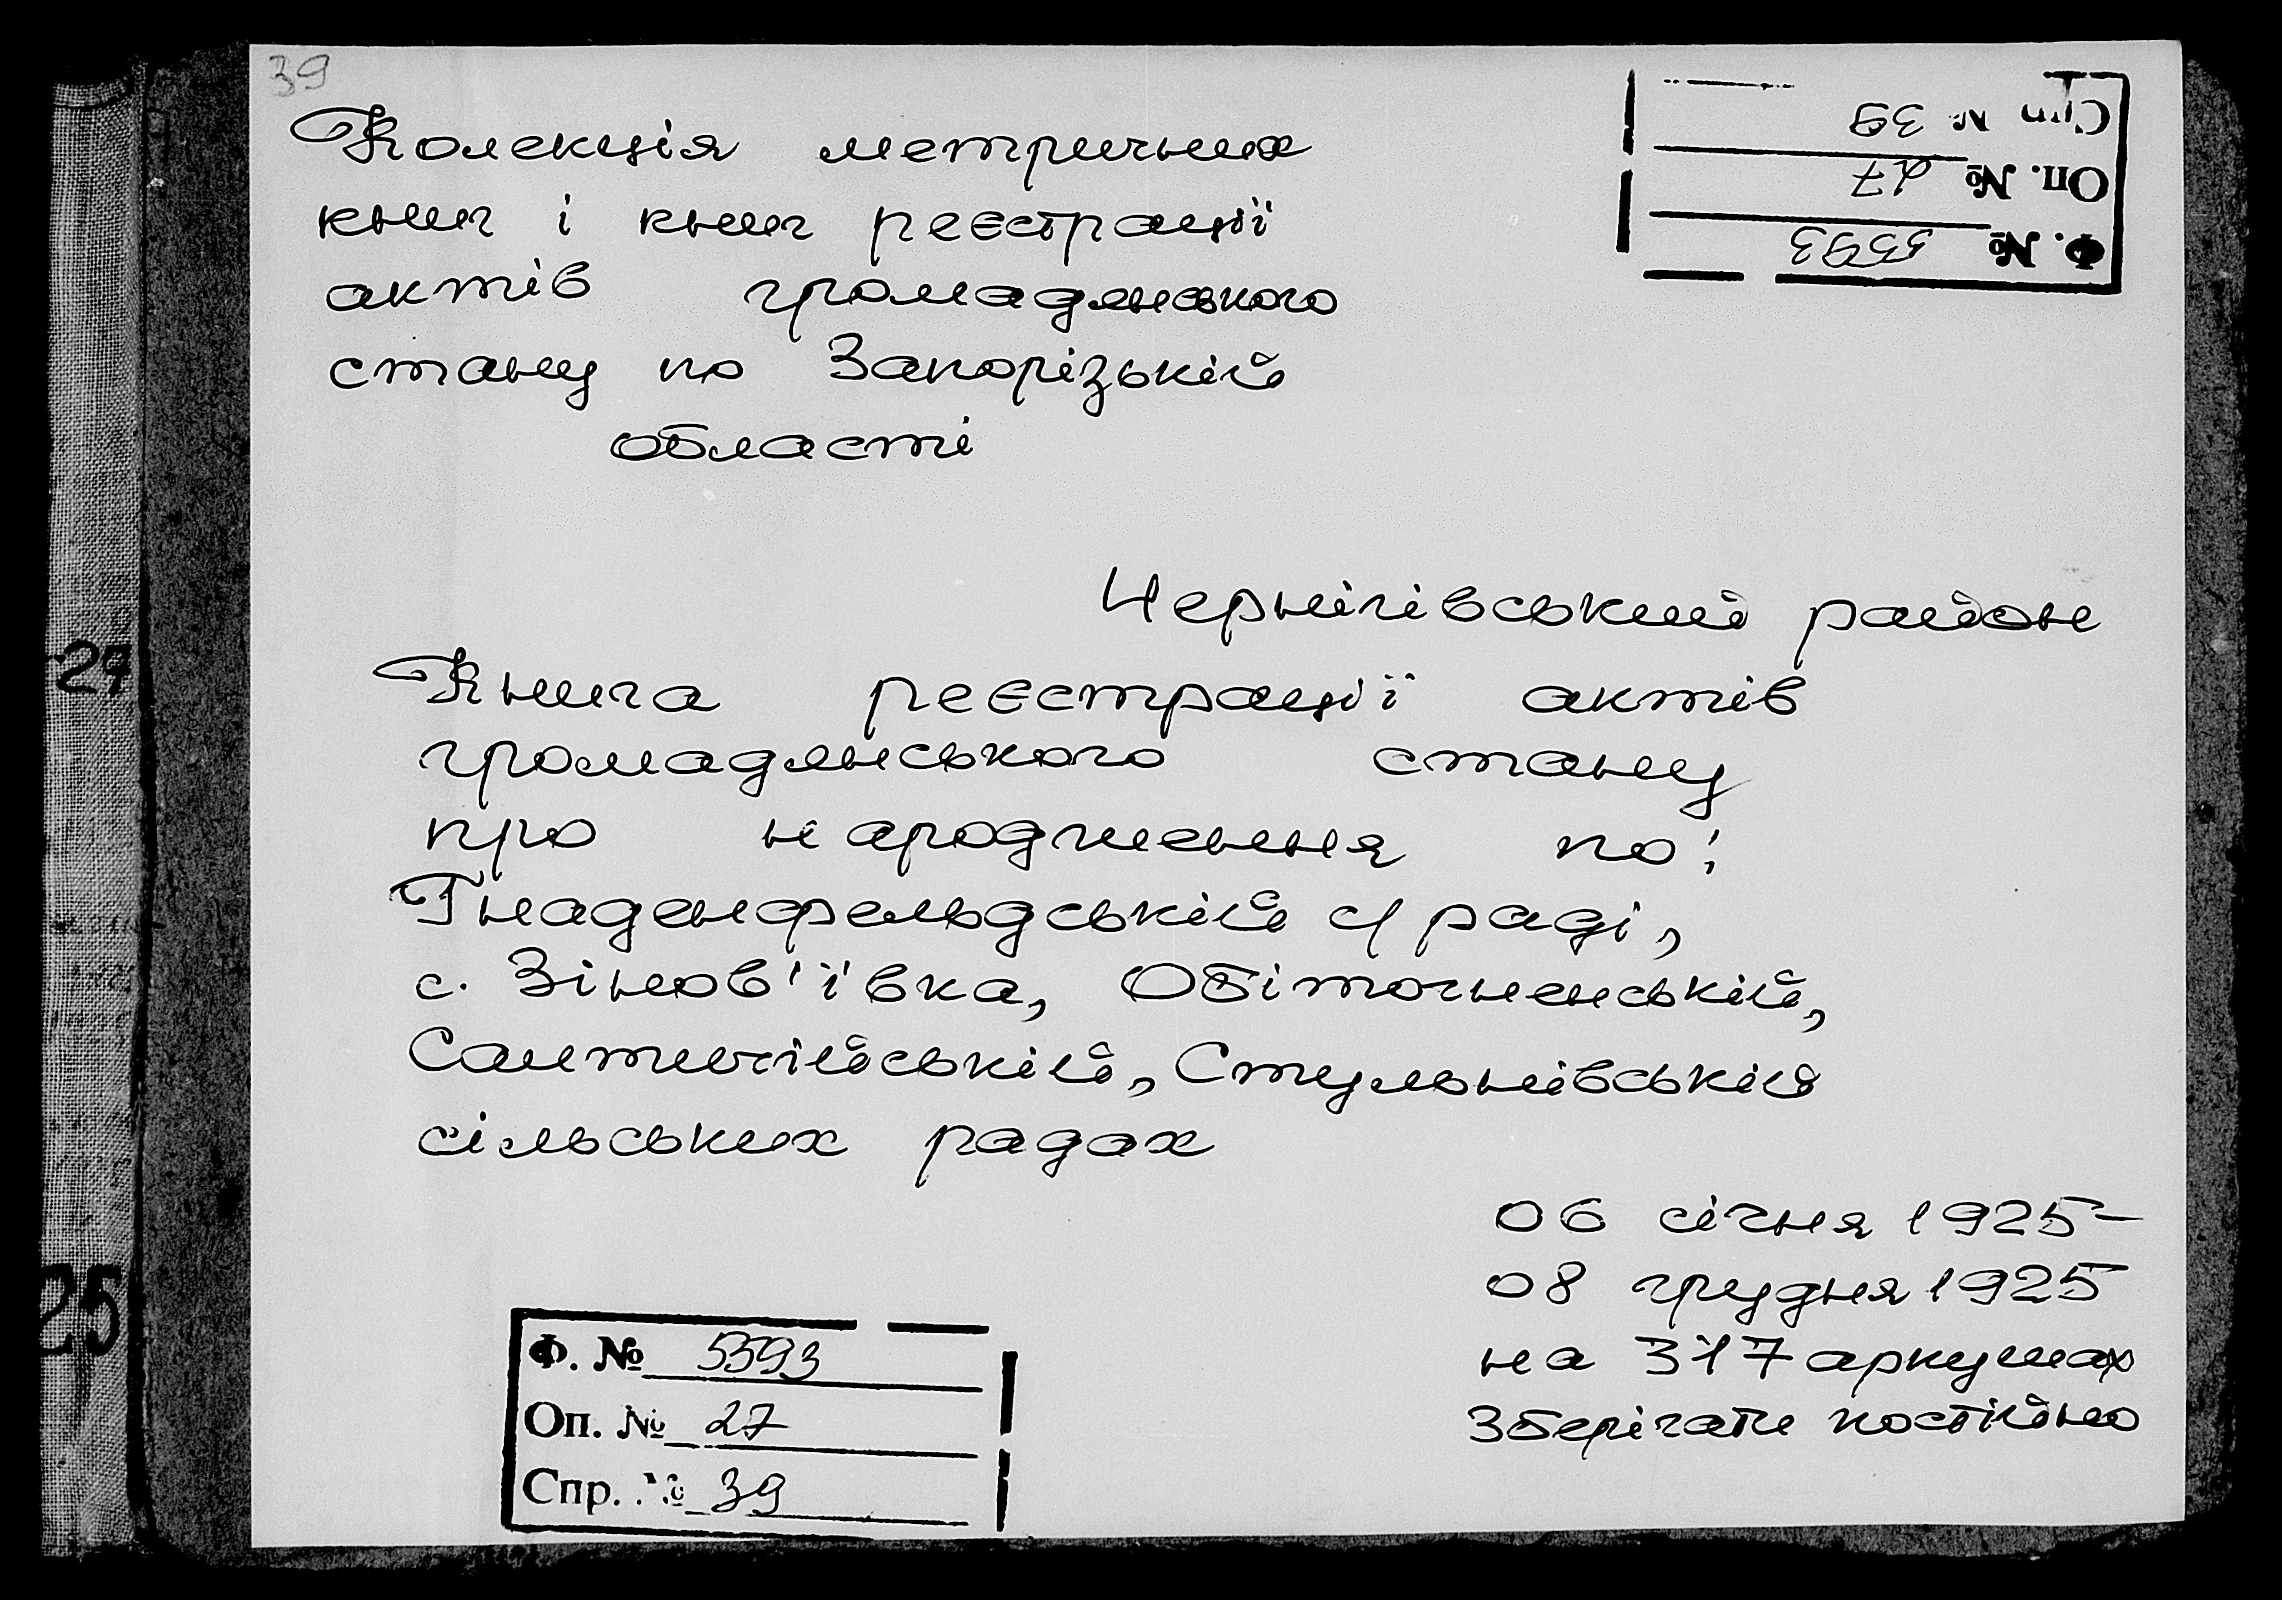 39
Колекція метричних
книг і книг реєстрації
актів громадянського
стану по Запорізькій
області
Спр. № 39
Оп. № 27
Ф. № 5593
Чернігівський район
Книга реєстрації актів
громадянського стану
про народження по:
Гнаденфельдській с/раді,
с. Зінов'ївка, Обіточненській,
Сантичійській, Стульнівській
сільських радах
06 січня 1925-
08 грудня 1925
на 317 аркушах
Зберігати постійно
Ф. № 5593
Оп. № 27
Спр. № 39
25